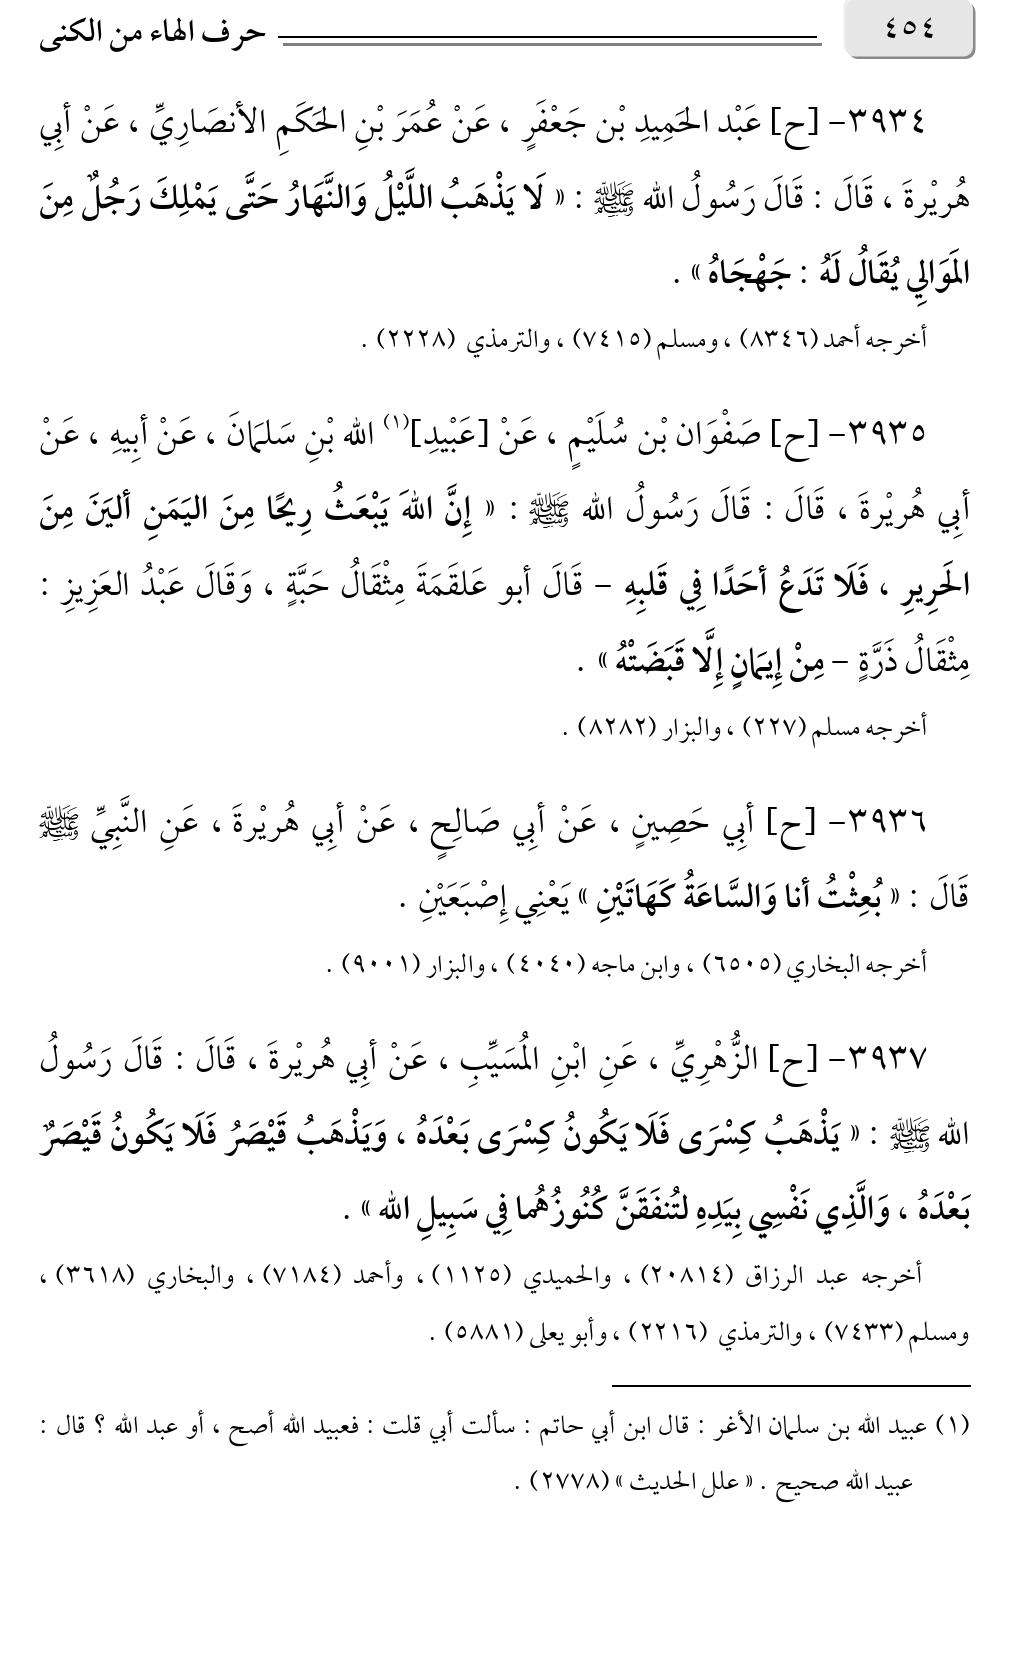 ٤٥٤
حرف الهاء من الكنى
٣٩٣٤- [ح] عَبْد الحَمِيدِ بْن جَعْفَرٍ ، عَنْ عُمَرَ بْنِ الحَكَمِ الأنصَارِيِّ ، عَنْ أبِي
هُريْرةَ ، قَالَ : قَالَ رَسُولُ الله ﷺ : « لَا يَذْهَبُ اللَّيْلُ وَالنَّهَارُ حَتَّى يَمْلِكَ رَجُلٌ مِنَ
المَوَالِي يُقَالُ لَهُ : جَهْجَاهُ » .
أخرجه أحمد (٨٣٤٦) ، ومسلم (٧٤١٥) ، والترمذي (٢٢٢٨) .
٣٩٣٥- [ح] صَفْوَان بْن سُلَيْمٍ ، عَنْ [عَبْيدِ](١) الله بْنِ سَلمَانَ ، عَنْ أبِيهِ ، عَنْ
أبِي هُريْرةَ ، قَالَ : قَالَ رَسُولُ الله ﷺ : « إِنَّ اللهَ يَبْعَثُ رِيحًا مِنَ اليَمَنِ أليَنَ مِنَ
الحَرِيرِ ، فَلَا تَدَعُ أحَدًا فِي قَلبِهِ – قَالَ أبو عَلقَمَةَ مِثْقَالُ حَبَّةٍ ، وَقَالَ عَبْدُ العَزِيزِ :
مِثْقَالُ ذَرَّةٍ – مِنْ إِيمَانٍ إِلَّا قَبَضَتْهُ » .
أخرجه مسلم (٢٢٧) ، والبزار (٨٢٨٢) .
٣٩٣٦- [ح] أبِي حَصِينٍ ، عَنْ أبِي صَالِحٍ ، عَنْ أبِي هُريْرةَ ، عَنِ النَّبِيِّ ﷺ
قَالَ : « بُعِثْتُ أنا وَالسَّاعَةُ كَهَاتَيْنِ » يَعْنِي إِصْبَعَيْنِ .
أخرجه البخاري (٦٥٠٥) ، وابن ماجه (٤٠٤٠) ، والبزار (٩٠٠١) .
٣٩٣٧- [ح] الزُّهْرِيِّ ، عَنِ ابْنِ المُسَيِّبِ ، عَنْ أبِي هُريْرةَ ، قَالَ : قَالَ رَسُولُ
الله ﷺ : « يَذْهَبُ كِسْرَى فَلَا يَكُونُ كِسْرَى بَعْدَهُ ، وَيَذْهَبُ قَيْصَرُ فَلَا يَكُونُ قَيْصَرٌ
بَعْدَهُ ، وَالَّذِي نَفْسِي بِيَدِهِ لتُنفَقَنَّ كُنُوزُهُما فِي سَبِيلِ الله » .
أخرجه عبد الرزاق (٢٠٨١٤) ، والحميدي (١١٢٥) ، وأحمد (٧١٨٤) ، والبخاري (٣٦١٨) ،
ومسلم (٧٤٣٣) ، والترمذي (٢٢١٦) ، وأبو يعلى (٥٨٨١) .
(١) عبيد الله بن سلمان الأغر : قال ابن أبي حاتم : سألت أبي قلت : فعبيد الله أصح ، أو عبد الله ؟ قال :
عبيد الله صحيح . « علل الحديث » (٢٧٧٨) .